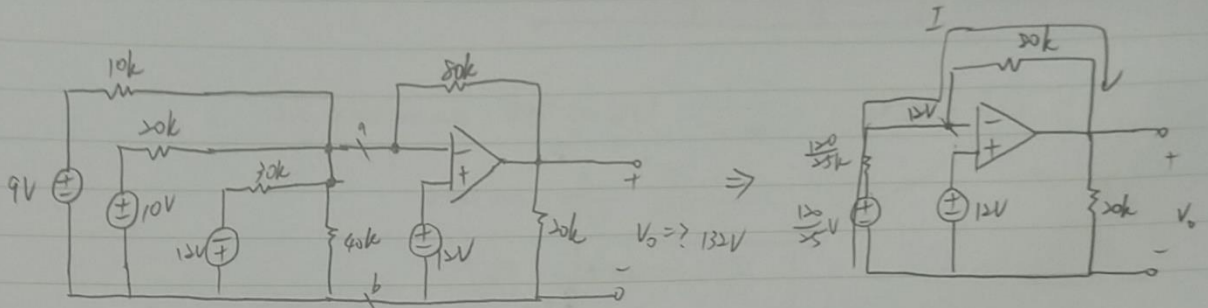 10k
20k
30k
40k
9V
10V
12V
a
b
80k
12V
20k
+
-
V₀=? 132V
⇒
I
80k
12V
120/25k
120/25 V
12V
20k
+
V₀
-